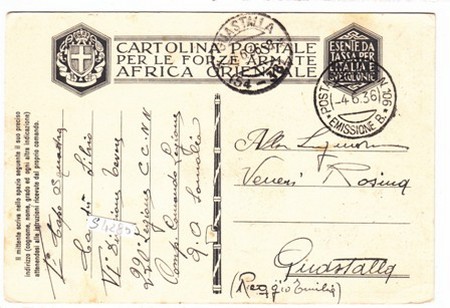 CARTOLINA POSTALE
PER LE FORZE ARMATE
AFRICA ORIENTALE
GUASTALLA
ESENTE DA
TASSA PER
L'ITALIA E
SVE COLONIE
POSTA
N° 106
- 4.6.36
* EMISSIONE B. *
Il mittente scriva nello spazio seguente il suo preciso
indirizzo (cognome, nome, grado ed ogni altra indicazione)
attenendosi alle istruzioni ricevute dal proprio comando.
1° Capo Squadra
Libio
VI° Divisione Tevere
220 Legione C.C.N.N.
Comp. Comando Legione
A.O. Somalia
Alla Signora
Veneri Rosina
Guastalla
(Reggio Emilia)